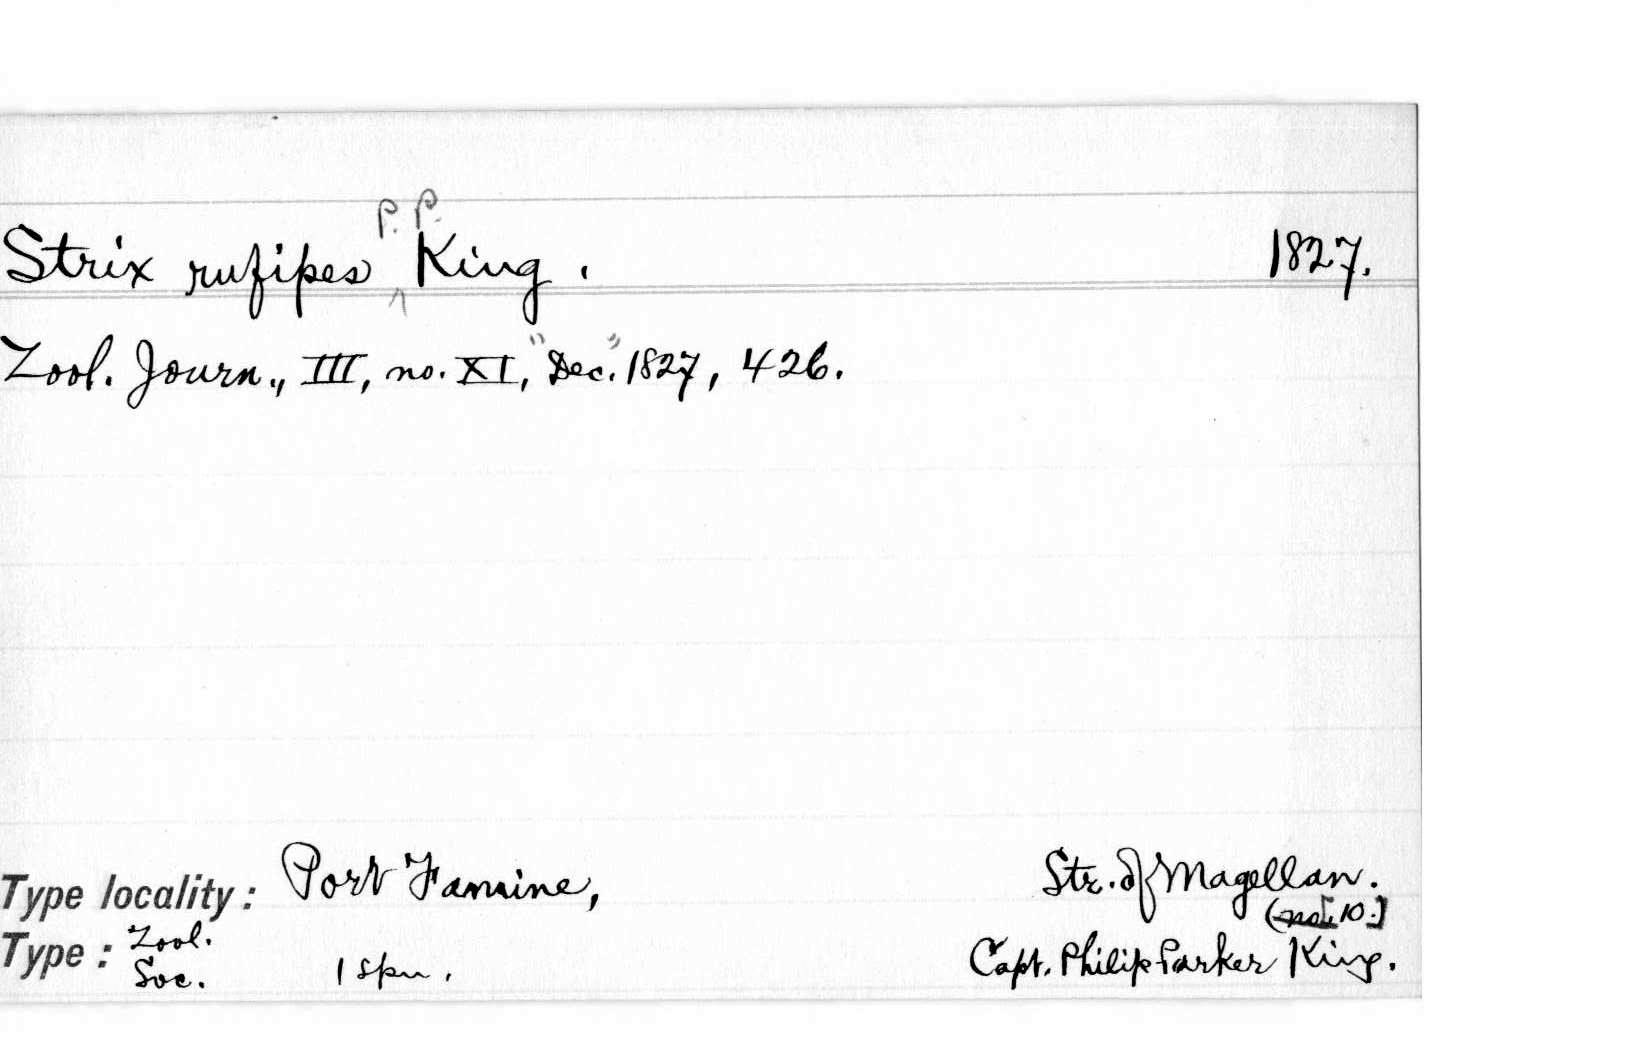 Strix rufipes P. P. King. 1827.
Zool. Journ., III, no. XI, "Dec." 1827, 426.
Type locality: Port Famine, Str. of Magellan.
[10.]
Type: Zool. Soc. 1 spm. Capt. Philip Parker King.